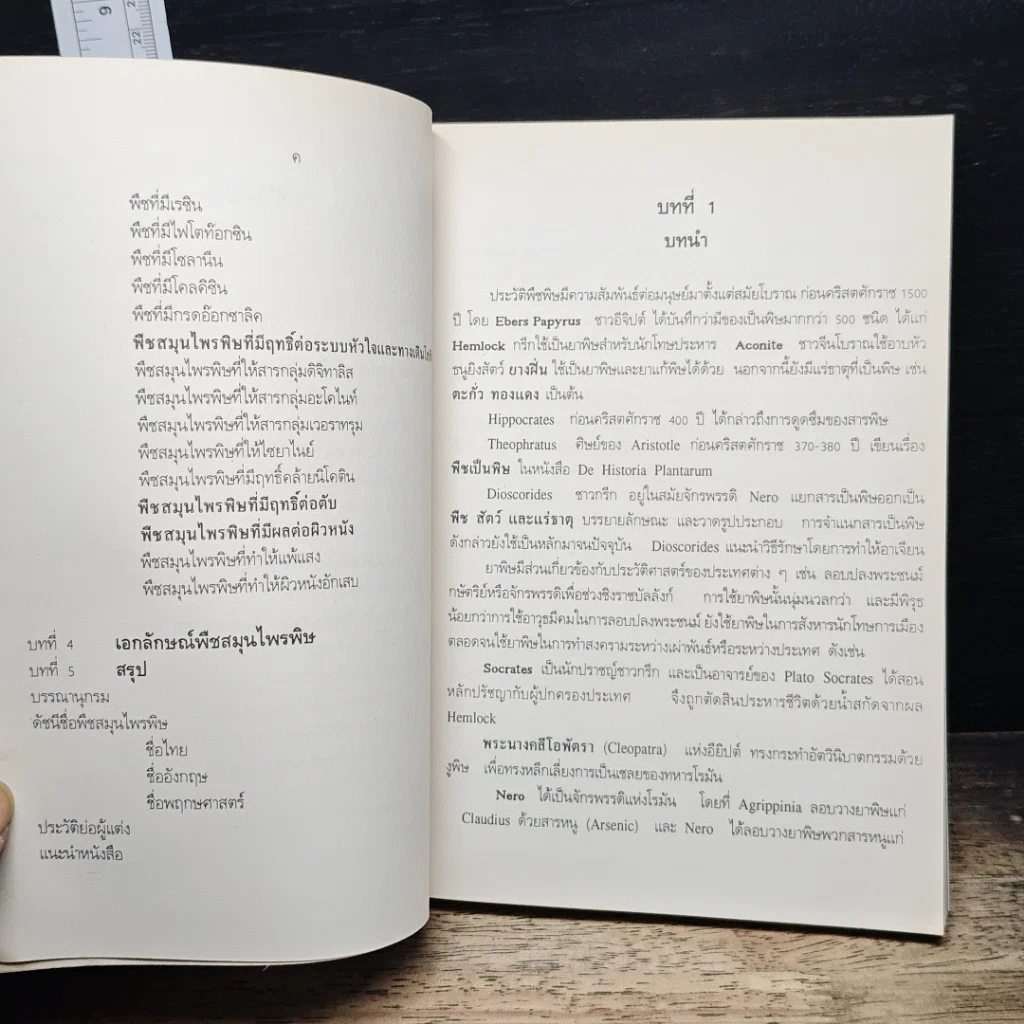 9
22
ค
พืชที่มีเรซิน
พืชที่มีไฟโตท๊อกซิน
พืชที่มีโซลานีน
พืชที่มีโคลคิซิน
พืชที่มีกรดอ๊อกซาลิค
พืชสมุนไพรพิษที่มีฤทธิ์ต่อระบบหัวใจและทางเดิน
พืชสมุนไพรพิษที่ให้สารกลุ่มดิจิทาลิส
พืชสมุนไพรพิษที่ให้สารกลุ่มอะโคไนท์
พืชสมุนไพรพิษที่ให้สารกลุ่มเวอราทรุม
พืชสมุนไพรพิษที่ให้ไซยาไนย์
พืชสมุนไพรพิษที่มีฤทธิ์คล้ายนิโคติน
พืชสมุนไพรพิษที่มีฤทธิ์ต่อตับ
พืชสมุนไพรพิษที่มีผลต่อผิวหนัง
พืชสมุนไพรพิษที่ทำให้แพ้แสง
พืชสมุนไพรพิษที่ทำให้ผิวหนังอักเสบ
บทที่ 4 เอกลักษณ์พืชสมุนไพรพิษ
บทที่ 5 สรุป
บรรณานุกรม
ดัชนีชื่อพืชสมุนไพรพิษ
ชื่อไทย
ชื่ออังกฤษ
ชื่อพฤกษศาสตร์
ประวัติย่อผู้แต่ง
แนะนำหนังสือ
บทที่ 1
บทนำ
ประวัติพืชพิษมีความสัมพันธ์ต่อมนุษย์มาตั้งแต่สมัยโบราณ ก่อนคริสตศักราช 1500
ปี โดย Ebers Papyrus ชาวอียิปต์ ได้บันทึกว่ามีของเป็นพิษมากกว่า 500 ชนิด ได้แก่
Hemlock กรีกใช้เป็นยาพิษสำหรับนักโทษประหาร Aconite ชาวจีนโบราณใช้อาบหัว
ธนูยิงสัตว์ ยางฝิ่น ใช้เป็นยาพิษและยาแก้พิษได้ด้วย นอกจากนี้ยังมีแร่ธาตุที่เป็นพิษ เช่น
ตะกั่ว ทองแดง เป็นต้น
Hippocrates ก่อนคริสตศักราช 400 ปี ได้กล่าวถึงการดูดซึมของสารพิษ
Theophratus ศิษย์ของ Aristotle ก่อนคริสตศักราช 370-380 ปี เขียนเรื่อง
พืชเป็นพิษ ในหนังสือ De Historia Plantarum
Dioscorides ชาวกรีก อยู่ในสมัยจักรพรรดิ Nero แยกสารเป็นพิษออกเป็น
พืช สัตว์ และแร่ธาตุ บรรยายลักษณะ และวาดรูปประกอบ การจำแนกสารเป็นพิษ
ดังกล่าวยังใช้เป็นหลักมาจนปัจจุบัน Dioscorides แนะนำวิธีรักษาโดยการทำให้อาเจียน
ยาพิษมีส่วนเกี่ยวข้องกับประวัติศาสตร์ของประเทศต่าง ๆ เช่น ลอบปลงพระชนม์
กษัตริย์หรือจักรพรรดิเพื่อช่วงชิงราชบัลลังก์ การใช้ยาพิษนั้นนุ่มนวลกว่า และมีพิรุธ
น้อยกว่าการใช้อาวุธมีคมในการลอบปลงพระชนม์ ยังใช้ยาพิษในการสังหารนักโทษการเมือง
ตลอดจนใช้ยาพิษในการทำสงครามระหว่างเผ่าพันธ์หรือระหว่างประเทศ ดังเช่น
Socrates เป็นนักปราชญ์ชาวกรีก และเป็นอาจารย์ของ Plato Socrates ได้สอน
หลักปรัชญากับผู้ปกครองประเทศ จึงถูกตัดสินประหารชีวิตด้วยน้ำสกัดจากผล
Hemlock
พระนางคลีโอพัตรา (Cleopatra) แห่งอียิปต์ ทรงกระทำอัตวินิบาตกรรมด้วย
งูพิษ เพื่อทรงหลีกเลี่ยงการเป็นเชลยของทหารโรมัน
Nero ได้เป็นจักรพรรดิแห่งโรมัน โดยที่ Agrippinia ลอบวางยาพิษแก่
Claudius ด้วยสารหนู (Arsenic) และ Nero ได้ลอบวางยาพิษพวกสารหนูแก่